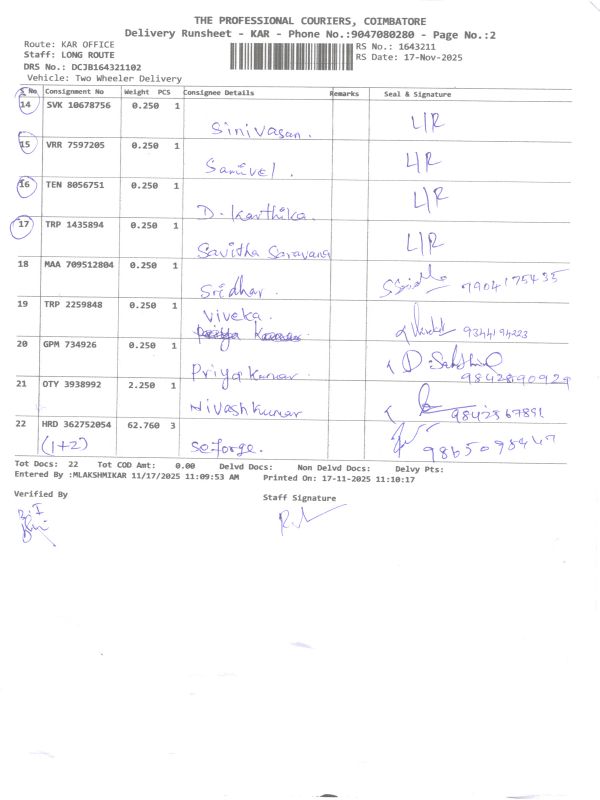 THE PROFESSIONAL COURIERS, COIMBATORE
Delivery Runsheet - KAR - Phone No.:9047080280 - Page No.:2
Route: KAR OFFICE RS No.: 1643211
Staff: LONG ROUTE RS Date: 17-Nov-2025
DRS No.: DCJB164321102
Vehicle: Two Wheeler Delivery
S No Consignment No Weight PCS Consignee Details Remarks Seal & Signature
14 SVK 10678756 0.250 1 Sinivasan. L/R
15 VRR 7597205 0.250 1 L/R
16 TEN 8056751 0.250 1 D. Karthika. L/R
17 TRP 1435894 0.250 1 Savitha Saravana L/R
18 MAA 709512804 0.250 1 Sridhar. 7904175435
19 TRP 2259848 0.250 1 Viveka. 9344194223
20 GPM 734926 0.250 1 Priyakumar.
21 OTY 3938992 2.250 1 Nivashkumar 9842867891
22 HRD 362752054 62.760 3 seforge.
(1+2)
Tot Docs: 22 Tot COD Amt: 0.00 Delvd Docs: Non Delvd Docs: Delvy Pts:
Entered By :MLAKSHMIKAR 11/17/2025 11:09:53 AM Printed On: 17-11-2025 11:10:17
Verified By Staff Signature